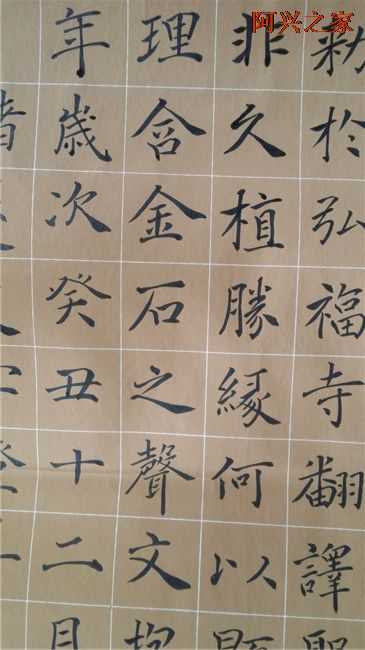 阿兴之家
於弘福寺翻譯
非久植勝緣何以顯
理含金石之聲文抱
年歲次癸丑十二月